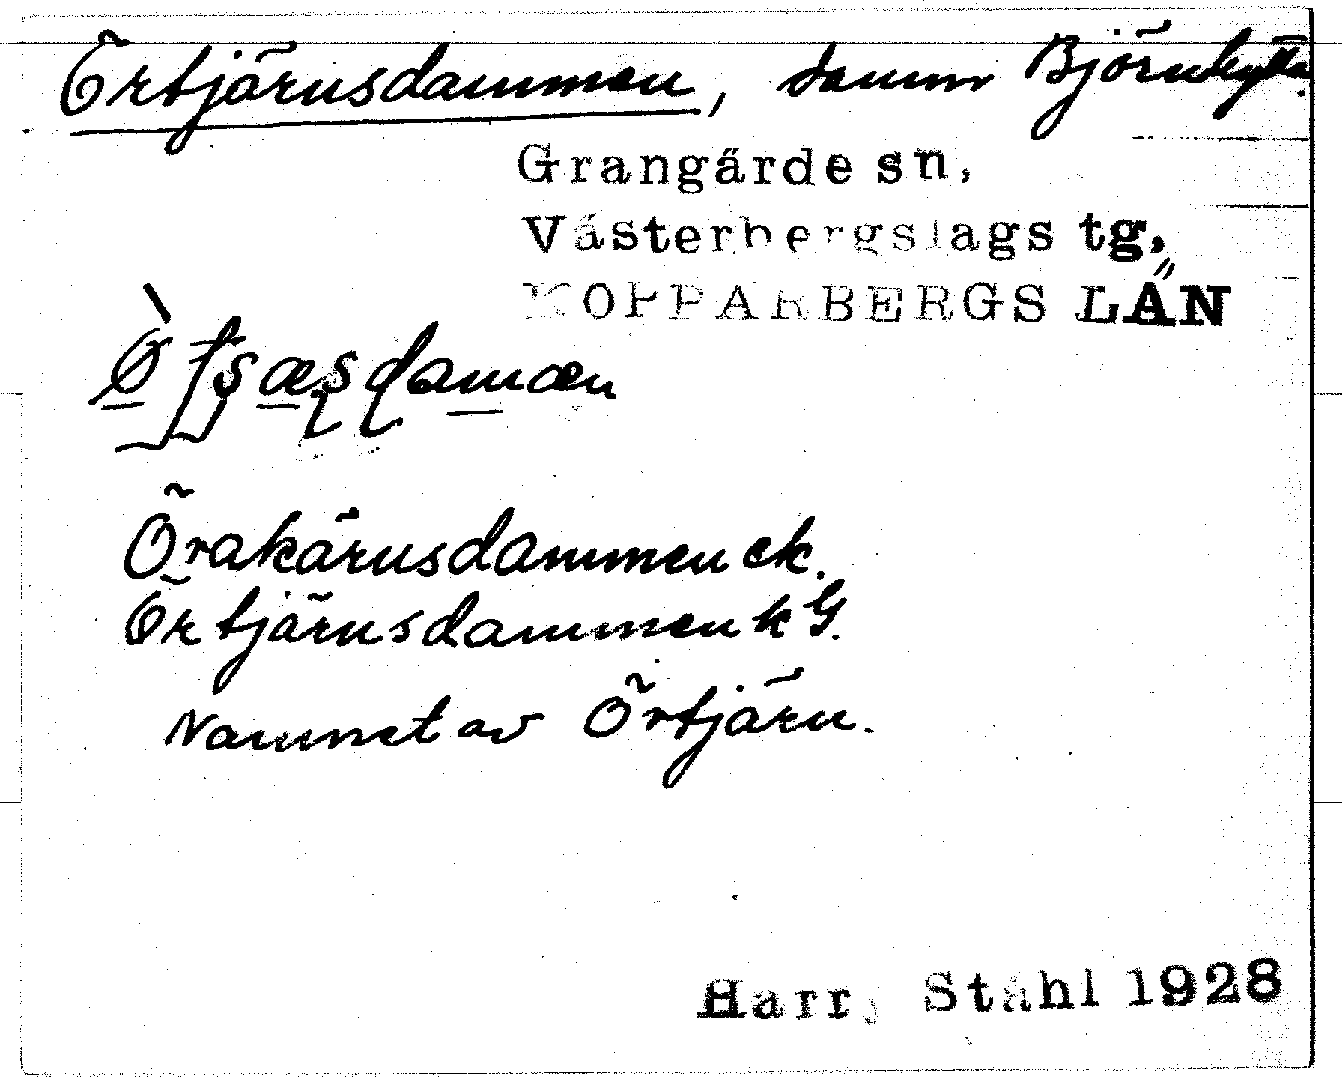 Örtjärnsdammen, damm Björnhyttan.
Grangärde sn,
Västerbergslags tg,
KOPPARBERGS LÄN
Örakärnsdammen ek.
Örtjärnsdammen k G.
Namnet av Örtjärn.
Harry Ståhl 1928